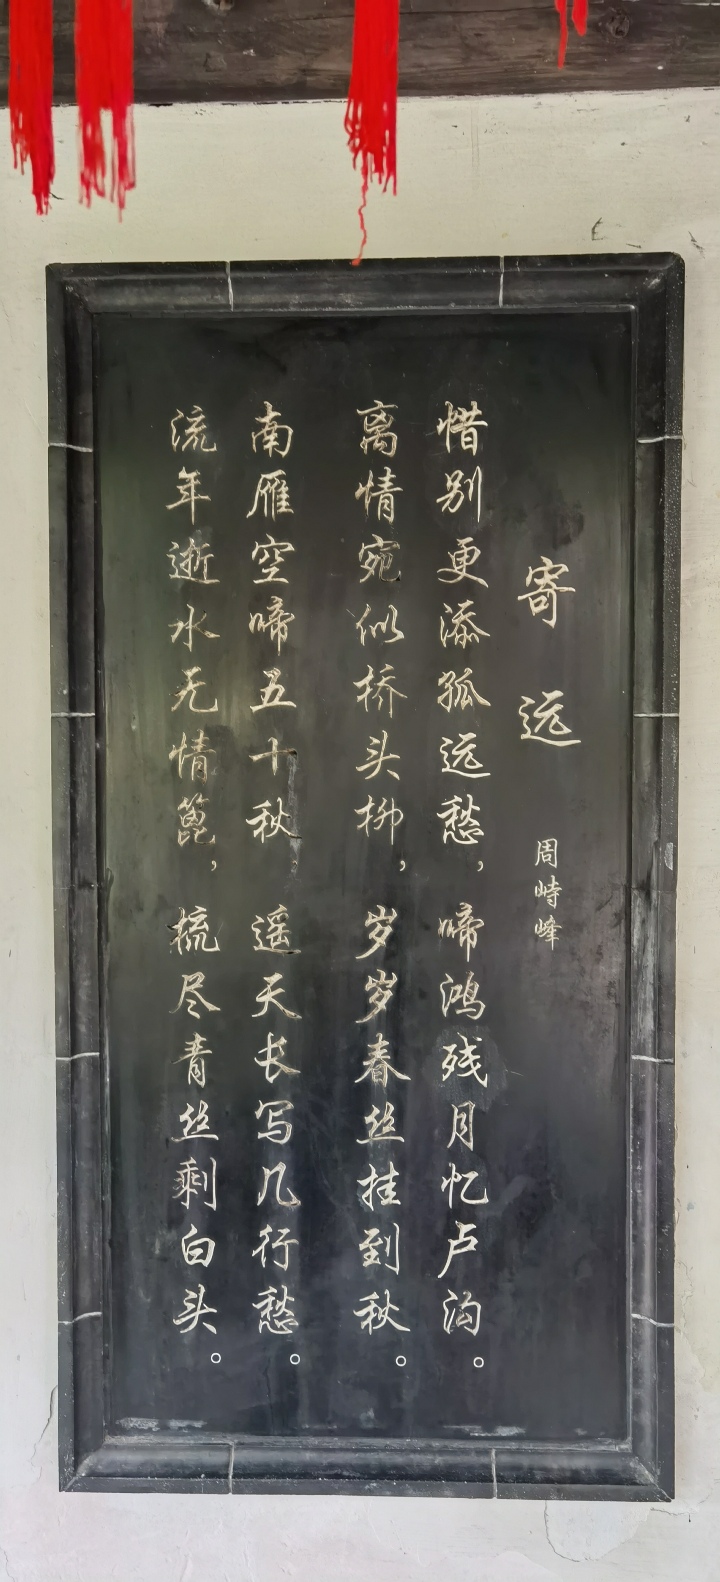 寄远
周峙峰
惜别更添孤远愁，啼鸿残月忆卢沟。
离情宛似桥头柳，岁岁春丝挂到秋。
南雁空啼五十秋，遥天长写几行愁。
流年逝水无情篦，梳尽青丝剩白头。